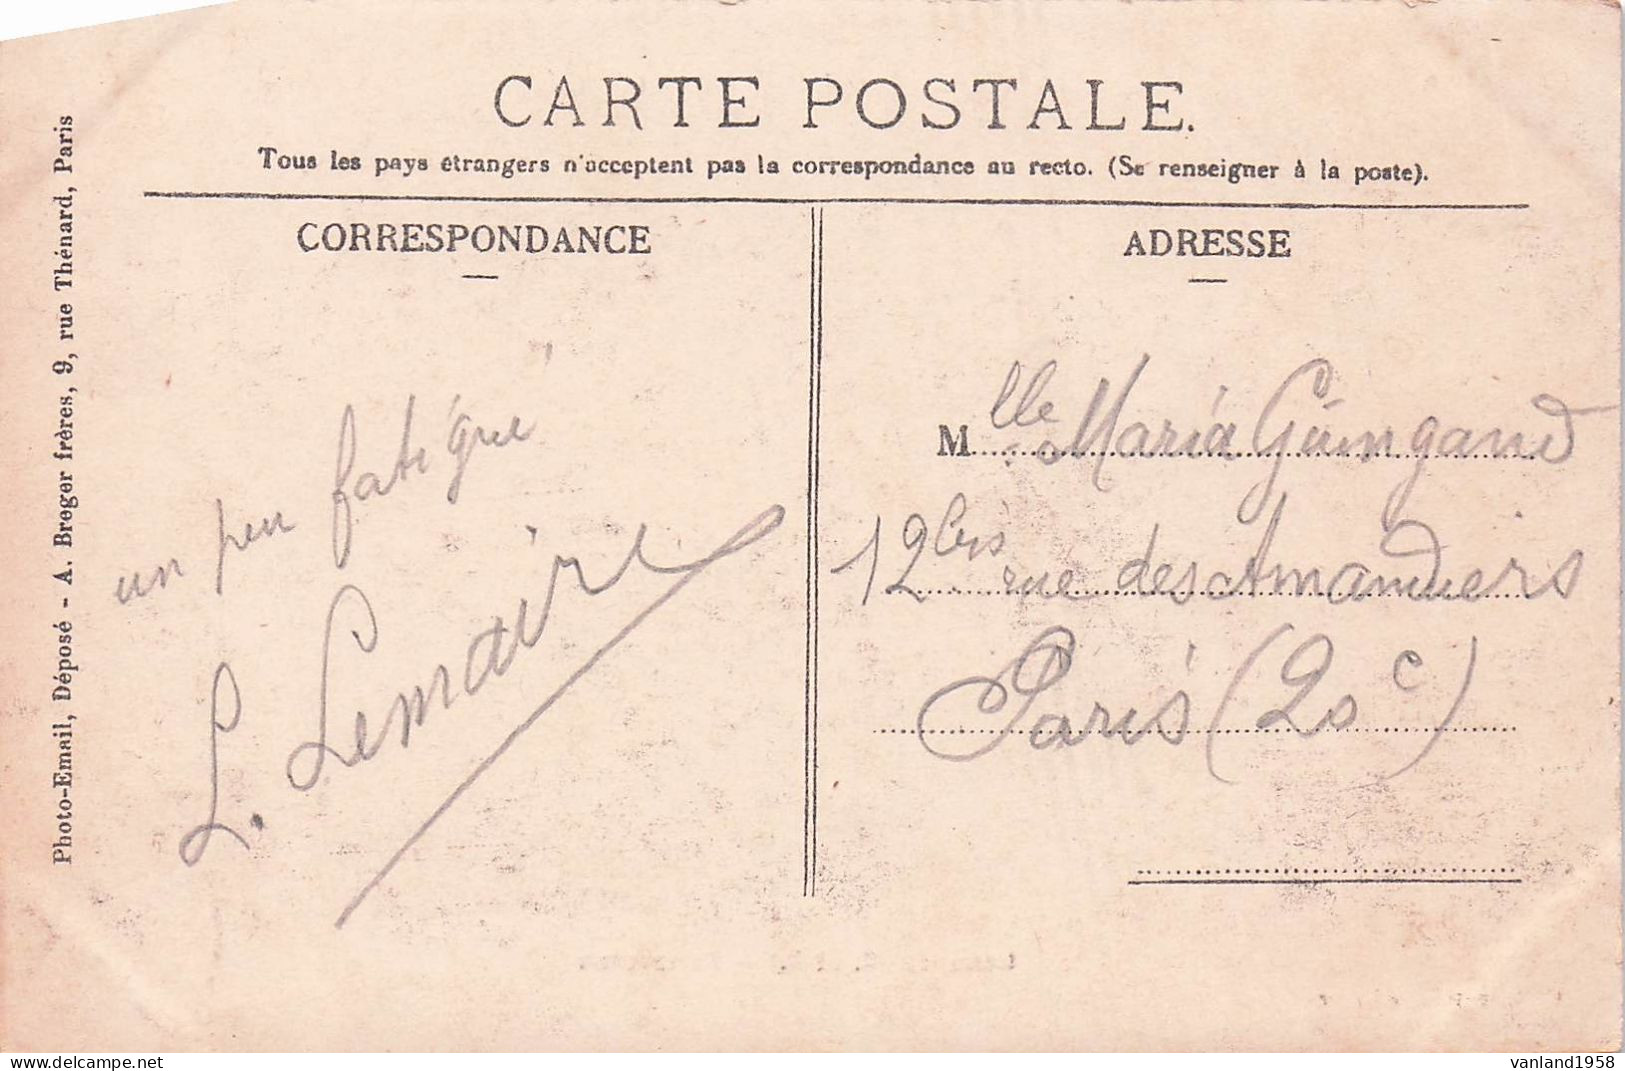 CARTE POSTALE.
Tous les pays étrangers n'acceptent pas la correspondance au recto. (Se renseigner à la poste).
Photo-Email, Déposé - A. Breger frères, 9, rue Thénard, Paris
CORRESPONDANCE
un peu fatigué
L. Lemaire
ADRESSE
Mlle Maria Guingand
12 bis rue des Amandiers
Paris (20e)
delcampe.net
vanland1958